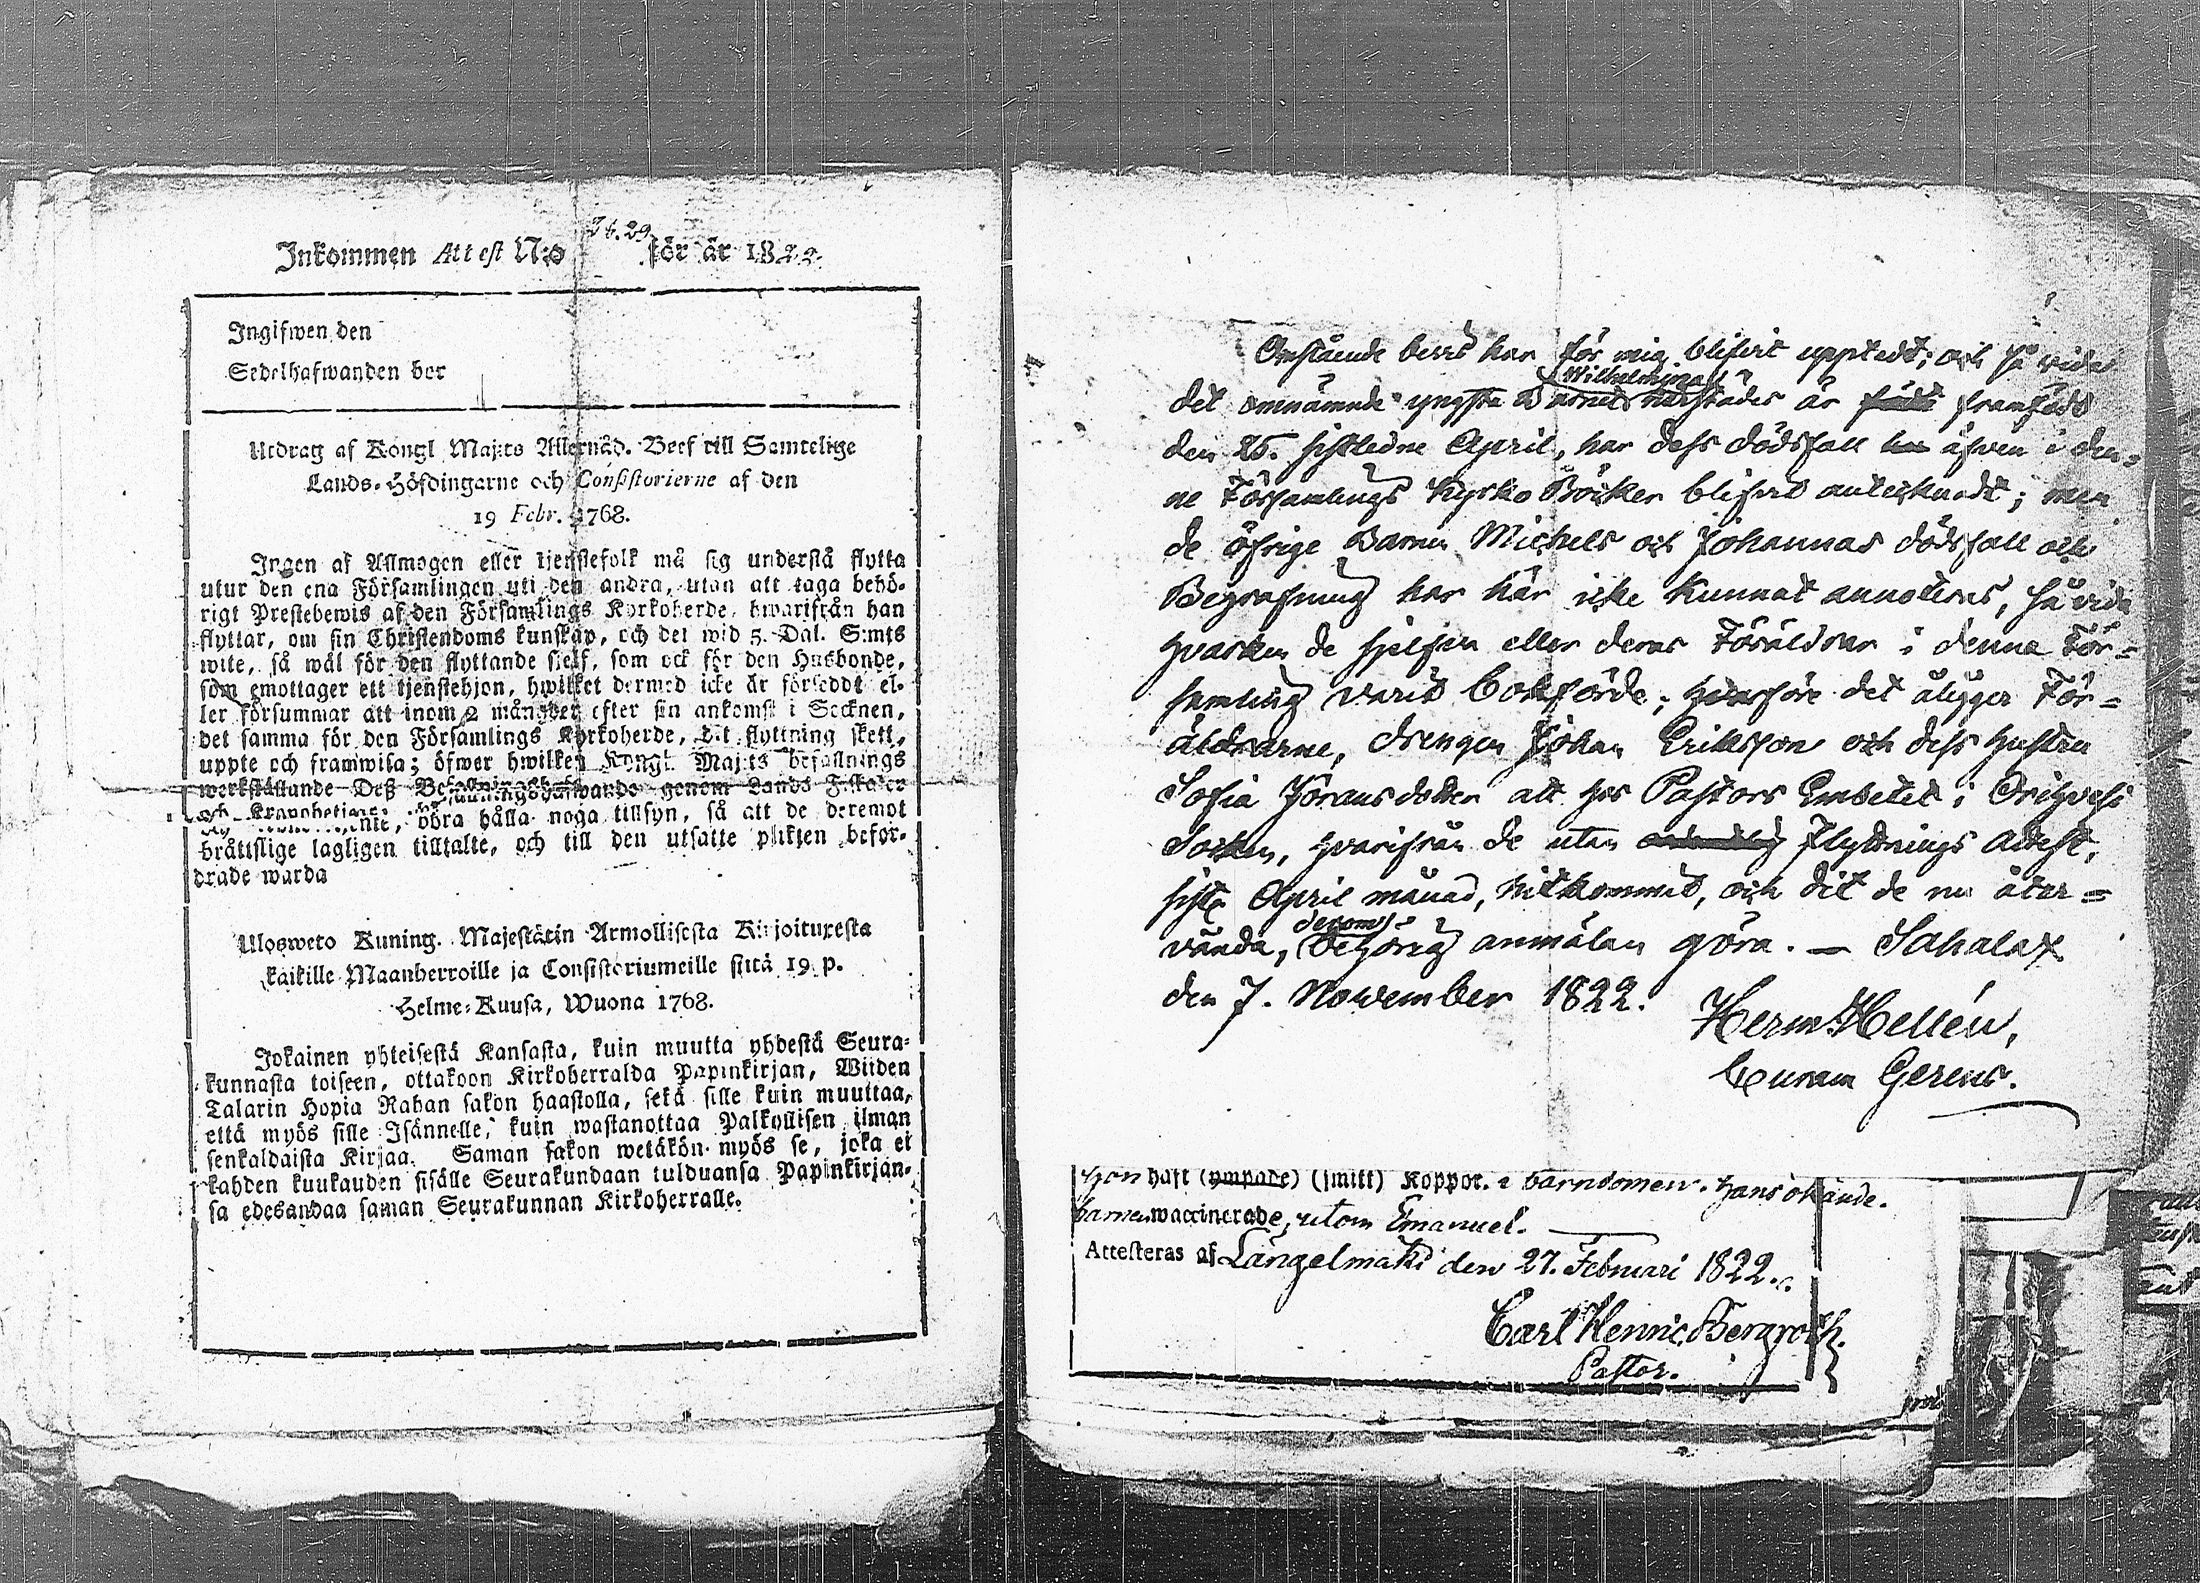 Inkommen Attest N:o 26. 29. för år 1822.
Ingifwen den
Sedelhafwanden bor
Utdrag af Kongl Maj:ts Allernåd. Bref till Samtelige
Lands-Höfdingarne och Consistorierne af den
19 Febr. 1768.
Ingen af Allmogen eller tjenstefolk må sig understå flytta
utur den ena Församlingen uti den andra, utan att taga behö-
rigt Prestebewis af den Församlings Kyrkoherde, hwarifrån han
flyttar, om sin Christendoms kunskap, och det wid 5. Dal. S:mts
wite, så wäl för den flyttande sjelf, som ock för den Husbonde,
som emottager ett tjenstehjon, hwilket dermed icke är försedt el-
ler försummar att inom 2 månader efter sin ankomst i Socknen,
det samma för den Församlings Kyrkoherde, dit flyttning skett,
uppte och framwisa; öfwer hwilken Kongl. Maj:ts befallnings
werkställande Deß Befallningshafwande genom Lands Fiskaler
och Kronobetjente, böra hålla noga tillsyn, så att de deremot
bråttslige lagligen tilltalte, och till den utsatte plikten befor-
drade warda
Ulosweto Kuning. Majestätin Armollisesta Kirjoituxesta
kaikille Maanherroille ja Consistoriumeille siitä 19 p.
Helme-Kuusa, Wuona 1768.
Jokainen yhteisestä Kansasta, kuin muutta yhdestä Seura-
kunnasta toiseen, ottakoon Kirkoherralda Papinkirjan, Wiiden
Talarin Hopia Rahan sakon haastolla, sekä sille kuin muuttaa,
että myös sille Isännelle, kuin wastanottaa Palkollisen ilman
senkaldaista Kirjaa. Saman sakon wetäkön myös se, joka ei
kahden kuukauden sisälle Seurakundaan tulduansa Papinkirjan-
sa edesandaa saman Seurakunnan Kirkoherralle.
Omstående bevis har för mig blifvit upptedt; och så vida
Wilhelmina
det omnämnde yngsta Barnet härstädes är framfödd
den 25. sistledne April, har dess dödsfall äfven i den-
ne Församlings Kyrko Böcker blifvit antecknadt; men
de öfrige Barnen Michels och Johannas dödsfall och
Begrafning har här icke kunnat annoteras, så vida
hvarken de sjelfva eller deras Föräldrar i denna För-
samling varit bokförde; hvarföre det åligger För-
äldrarne, drengen Johan Eriksson och dess hustru
Sofia Göransdotter att hos Pastors Embetet i Orihvesi
Socken, hvarifrån de utan Flyttnings Attest,
sistl. April månad, hitkommit, och dit de nu åter-
vända, derom behörig anmälan göra. — Sahalax
den 7. November 1822.
Herm. Hellén,
Curam Gerens.
hon haft (ympade) (smitt) Koppor. i barndomen. hans okände.
barnen waccinerade, utom Emanuel.
Attesteras af Längelmäki den 27. Februari 1822.
Carl Henric Bergroth.
Pastor.